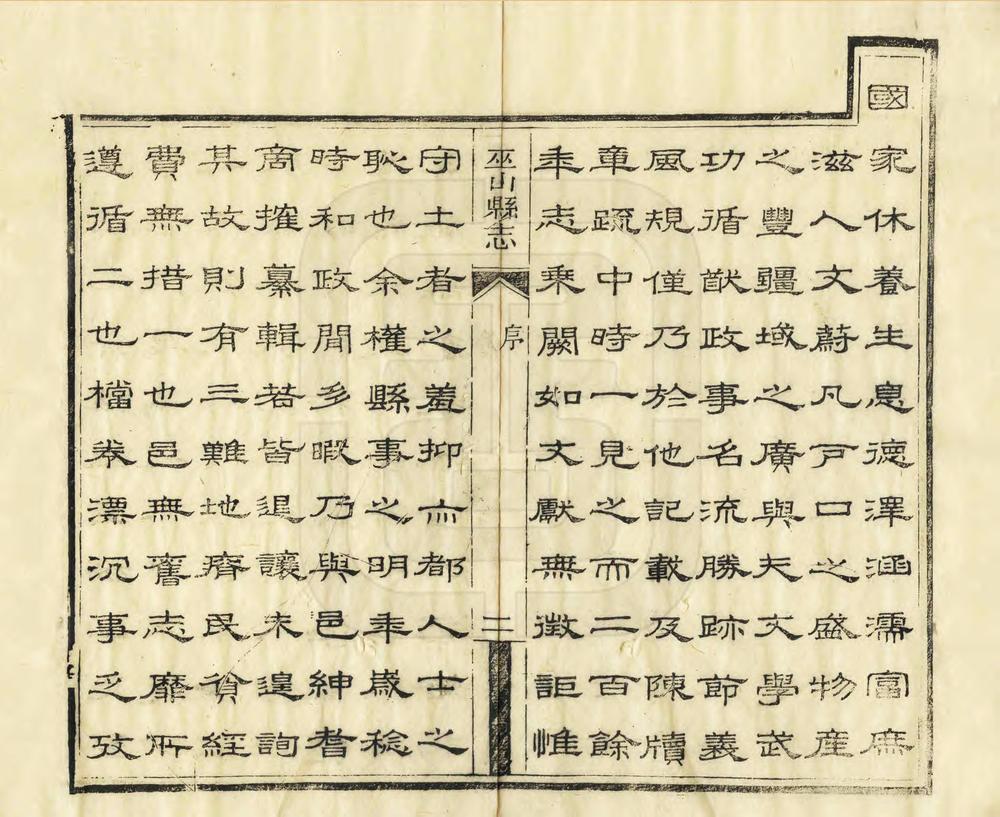 國
家休養生息德澤涵濡富庶
滋人文蔚凡戸口之盛物產
之豐疆域之廣與夫文學武
功循猷政事名流勝跡節義
風規僅乃於他記載及陳牘
章疏中時一見之而二百餘
年志乘闕如文獻無徵詎惟
巫山縣志
序
二
守土者之羞抑亦都人士之
恥也余權縣事之明年歲稔
時和政閒多暇乃與邑紳耆
商搉纂輯若皆退讓未遑詢
其故則有三難地瘠民貧經
費無措一也邑無舊志靡所
遵循二也檔卷漂沉事乏攷